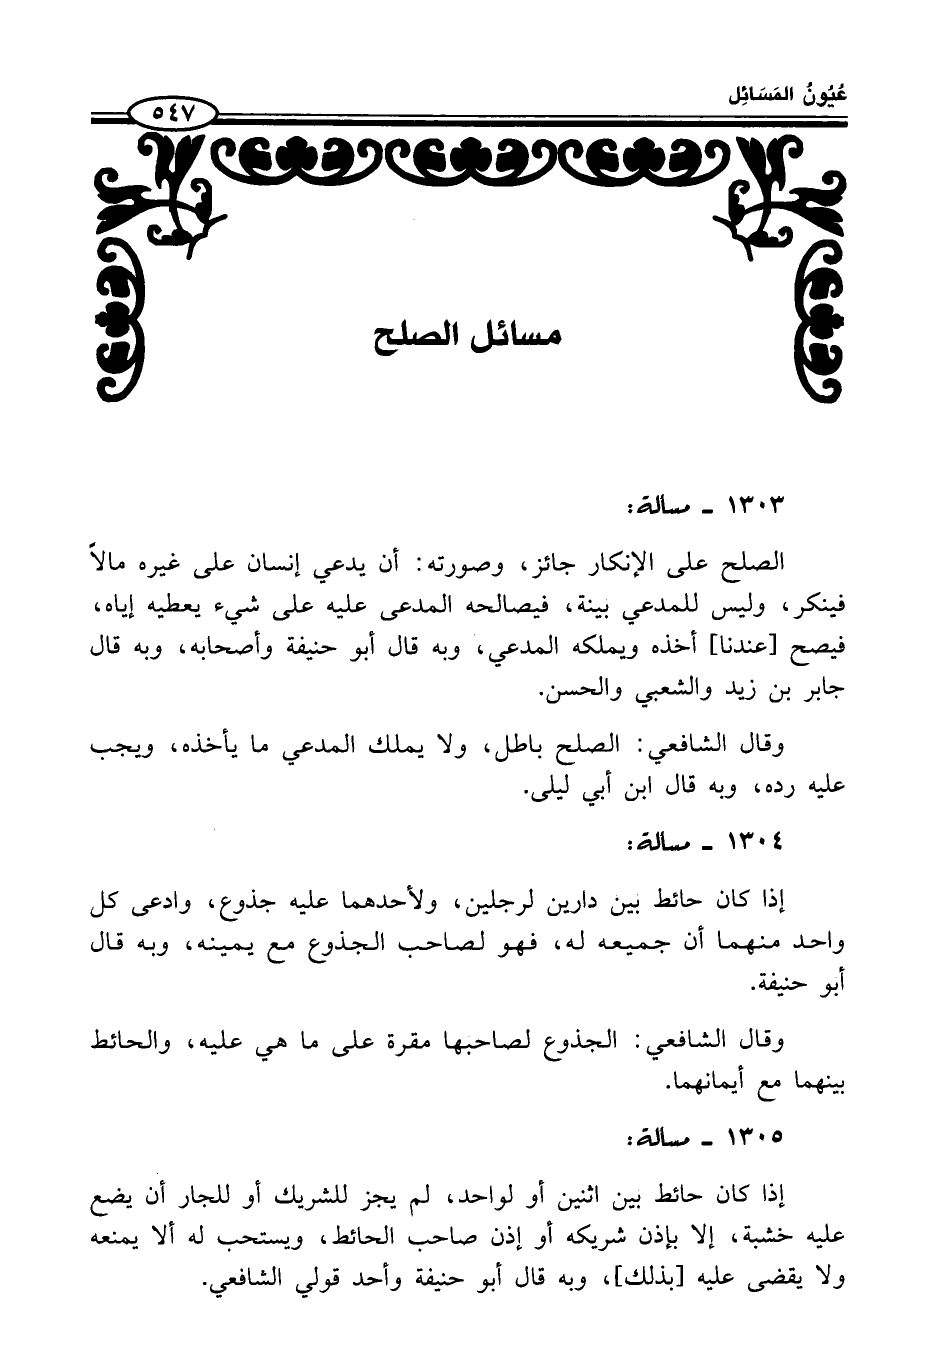 عُيُونُ المَسَائِل
٥٤٧
مسائل الصلح
١٣٠٣ ـ مسالة:
الصلح على الإنكار جائز، وصورته: أن يدعي إنسان على غيره مالاً
فينكر، وليس للمدعي بينة، فيصالحه المدعى عليه على شيء يعطيه إياه،
فيصح [عندنا] أخذه ويملكه المدعي، وبه قال أبو حنيفة وأصحابه، وبه قال
جابر بن زيد والشعبي والحسن.
وقال الشافعي: الصلح باطل، ولا يملك المدعي ما يأخذه، ويجب
عليه رده، وبه قال ابن أبي ليلى.
١٣٠٤ ـ مسالة:
إذا كان حائط بين دارين لرجلين، ولأحدهما عليه جذوع، وادعى كل
واحد منهما أن جميعه له، فهو لصاحب الجذوع مع يمينه، وبه قال
أبو حنيفة.
وقال الشافعي: الجذوع لصاحبها مقرة على ما هي عليه، والحائط
بينهما مع أيمانهما.
١٣٠٥ ـ مسالة:
إذا كان حائط بين اثنين أو لواحد، لم يجز للشريك أو للجار أن يضع
عليه خشبة، إلا بإذن شريكه أو إذن صاحب الحائط، ويستحب له ألا يمنعه
ولا يقضى عليه [بذلك]، وبه قال أبو حنيفة وأحد قولي الشافعي.